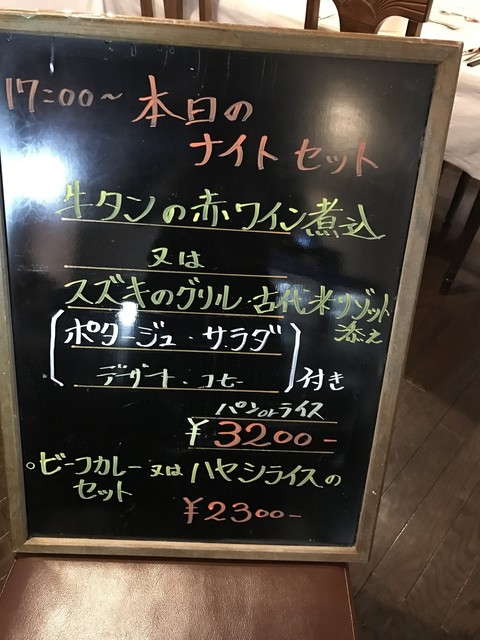 17:00～ 本日の
ナイトセット
牛タンの赤ワイン煮込
又は
スズキのグリル・古代米リゾット
添え
ポタージュ・サラダ
デザート・コーヒー
付き
パンorライス
¥3200-
○ビーフカレー又はハヤシライスの
セット
¥2300-